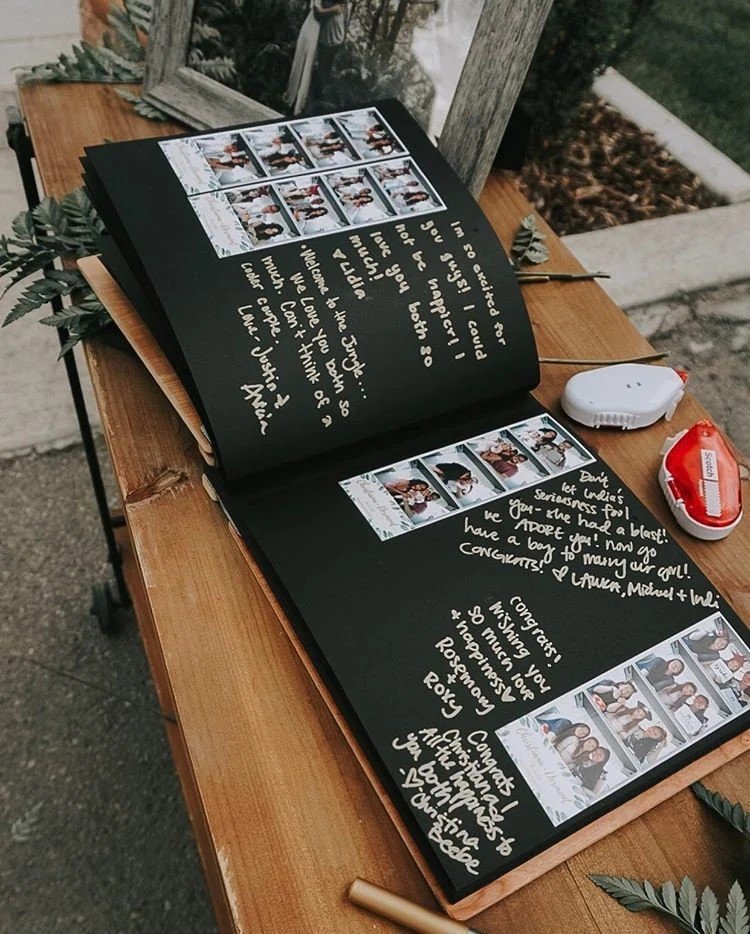 I'm so excited for
you guys! I could
not be happier! I
love you both so
much!
♥ Lidia
"Welcome to the Jungle...
We love you both so
much. Can't think of a
cooler couple.
Love, Justin +
Don't
let India's
seriousness fool
you - she had a blast!
we ADORE you! now go
have a boy to marry our girl!
CONGRATS! ♥ LAURA, Michael + Indi
congrats!
wishing you
so much love
+ happiness ♥
Rosemary
+ Roxy
Congrats!
Christian and
All the happiness to
you both
♡ Christina
Beebe
Scotch